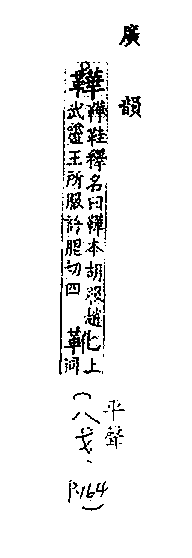 廣韻
鞾鞾鞋釋名曰鞾本胡服趙
武靈王所服許肥切四𩌦上
華同
平聲
(八戈、
p.164)